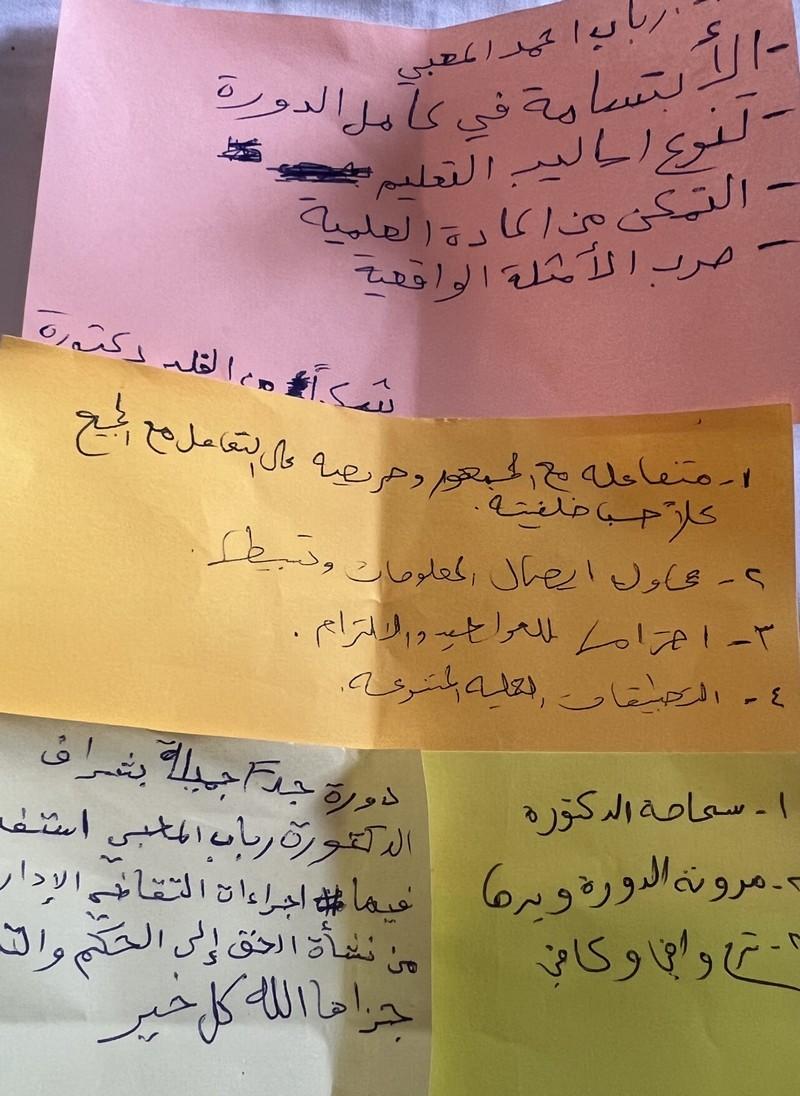 رباب احمد المعبي
- الأبتسامة في كامل الدورة
- تنوع اساليب التعليم
- التمكن من المادة العلمية
- ضرب الأمثلة الواقعية
شكراً من القلب دكتورة
١- متفاعله مع الجمهور وحريصه على التفاعل مع الجميع
كلاً حسب خلفيته.
٢- تحاول ايصال المعلومات وتبسيطها.
٣- احترامها للمواعيد والالتزام.
٤- التطبيقات العمليه المتنوعه.
دورة جداً جميلة بشراف
الدكتورة رباب المعبي استفد
فيما اجراءات التقاضي الإدار
من نشأة الحق إلى الحكم والت
جزاها الله كل خير
١- سماحة الدكتوره
٢- مرونة الدورة ويسرها
٣- شرح وافي وكافي